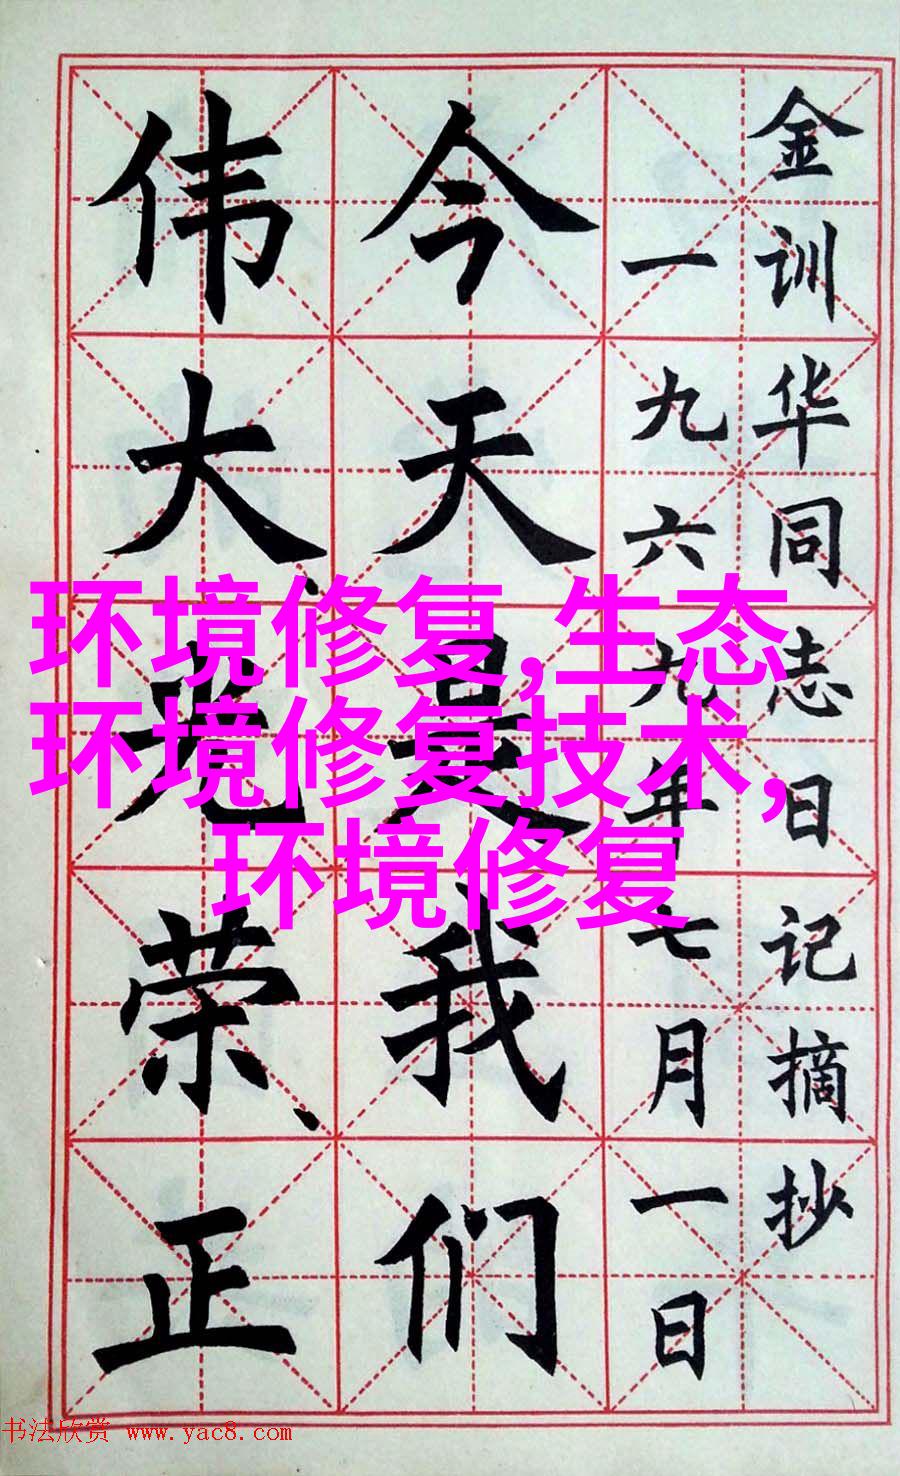 金训华同志日记摘抄
一九六九年七月一日
今天是我们
伟大、光荣、正
环境修复,生态
环境修复技术,
环境修复
书法欣赏 www.yac8.com